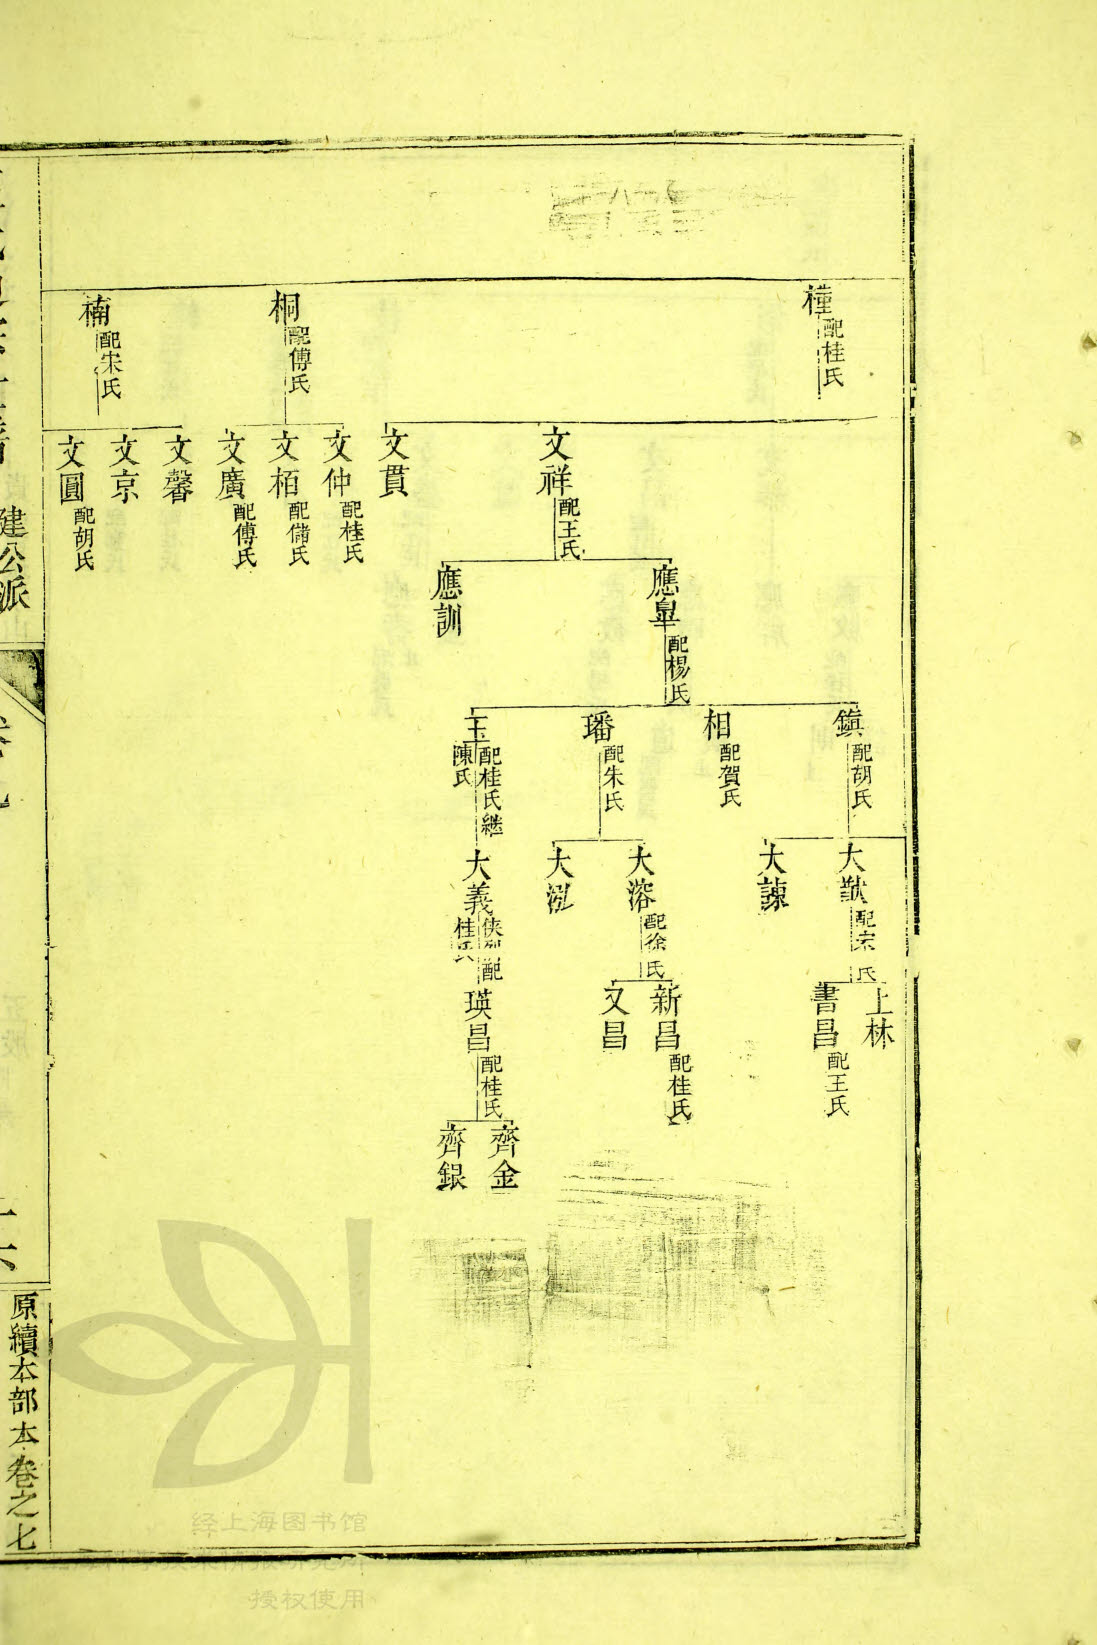 橦 配桂氏
桐 配傅氏
楠 配宋氏
文祥 配王氏
文貫
文仲 配桂氏
文栢 配儲氏
文廣 配傅氏
文馨
文京
文圓 配胡氏
應臯 配楊氏
應訓
鎮 配胡氏
相 配賀氏
璠 配朱氏
玉 配桂氏繼陳氏
大猷 配宋氏
大諫
大溶 配徐氏
大泓
大義 桂氏
上林
書昌 配王氏
新昌 配桂氏
又昌
瑛昌 配桂氏
齊金
齊銀
建公派
原續本部本卷之七
经上海图书馆
授权使用